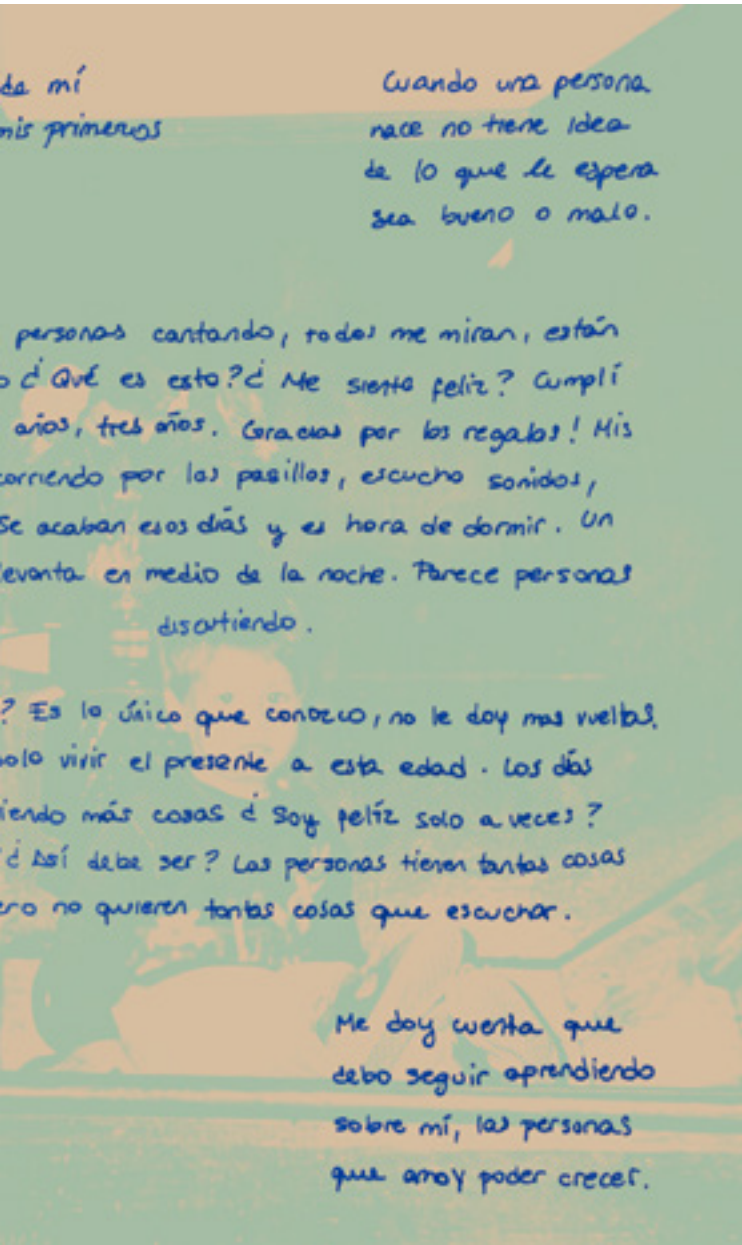 de mí
mis primeros
Cuando una persona
nace no tiene idea
de lo que le espera
sea bueno o malo.
personas cantando, todos me miran, están
o ¿Qué es esto? ¿Me siento feliz? Cumplí
años, tres años. Gracias por los regalos! Mis
corriendo por los pasillos, escucho sonidos,
Se acaban esos días y es hora de dormir. Un
levanta en medio de la noche. Parece personas
discutiendo.
? Es lo único que conozco, no le doy mas vueltas.
solo vivir el presente a esta edad. Los días
iendo más cosas ¿Soy felíz solo a veces?
¿Así debe ser? Las personas tienen tantas cosas
ero no quieren tantas cosas que escuchar.
Me doy cuenta que
debo seguir aprendiendo
sobre mí, las personas
que amo y poder crecer.